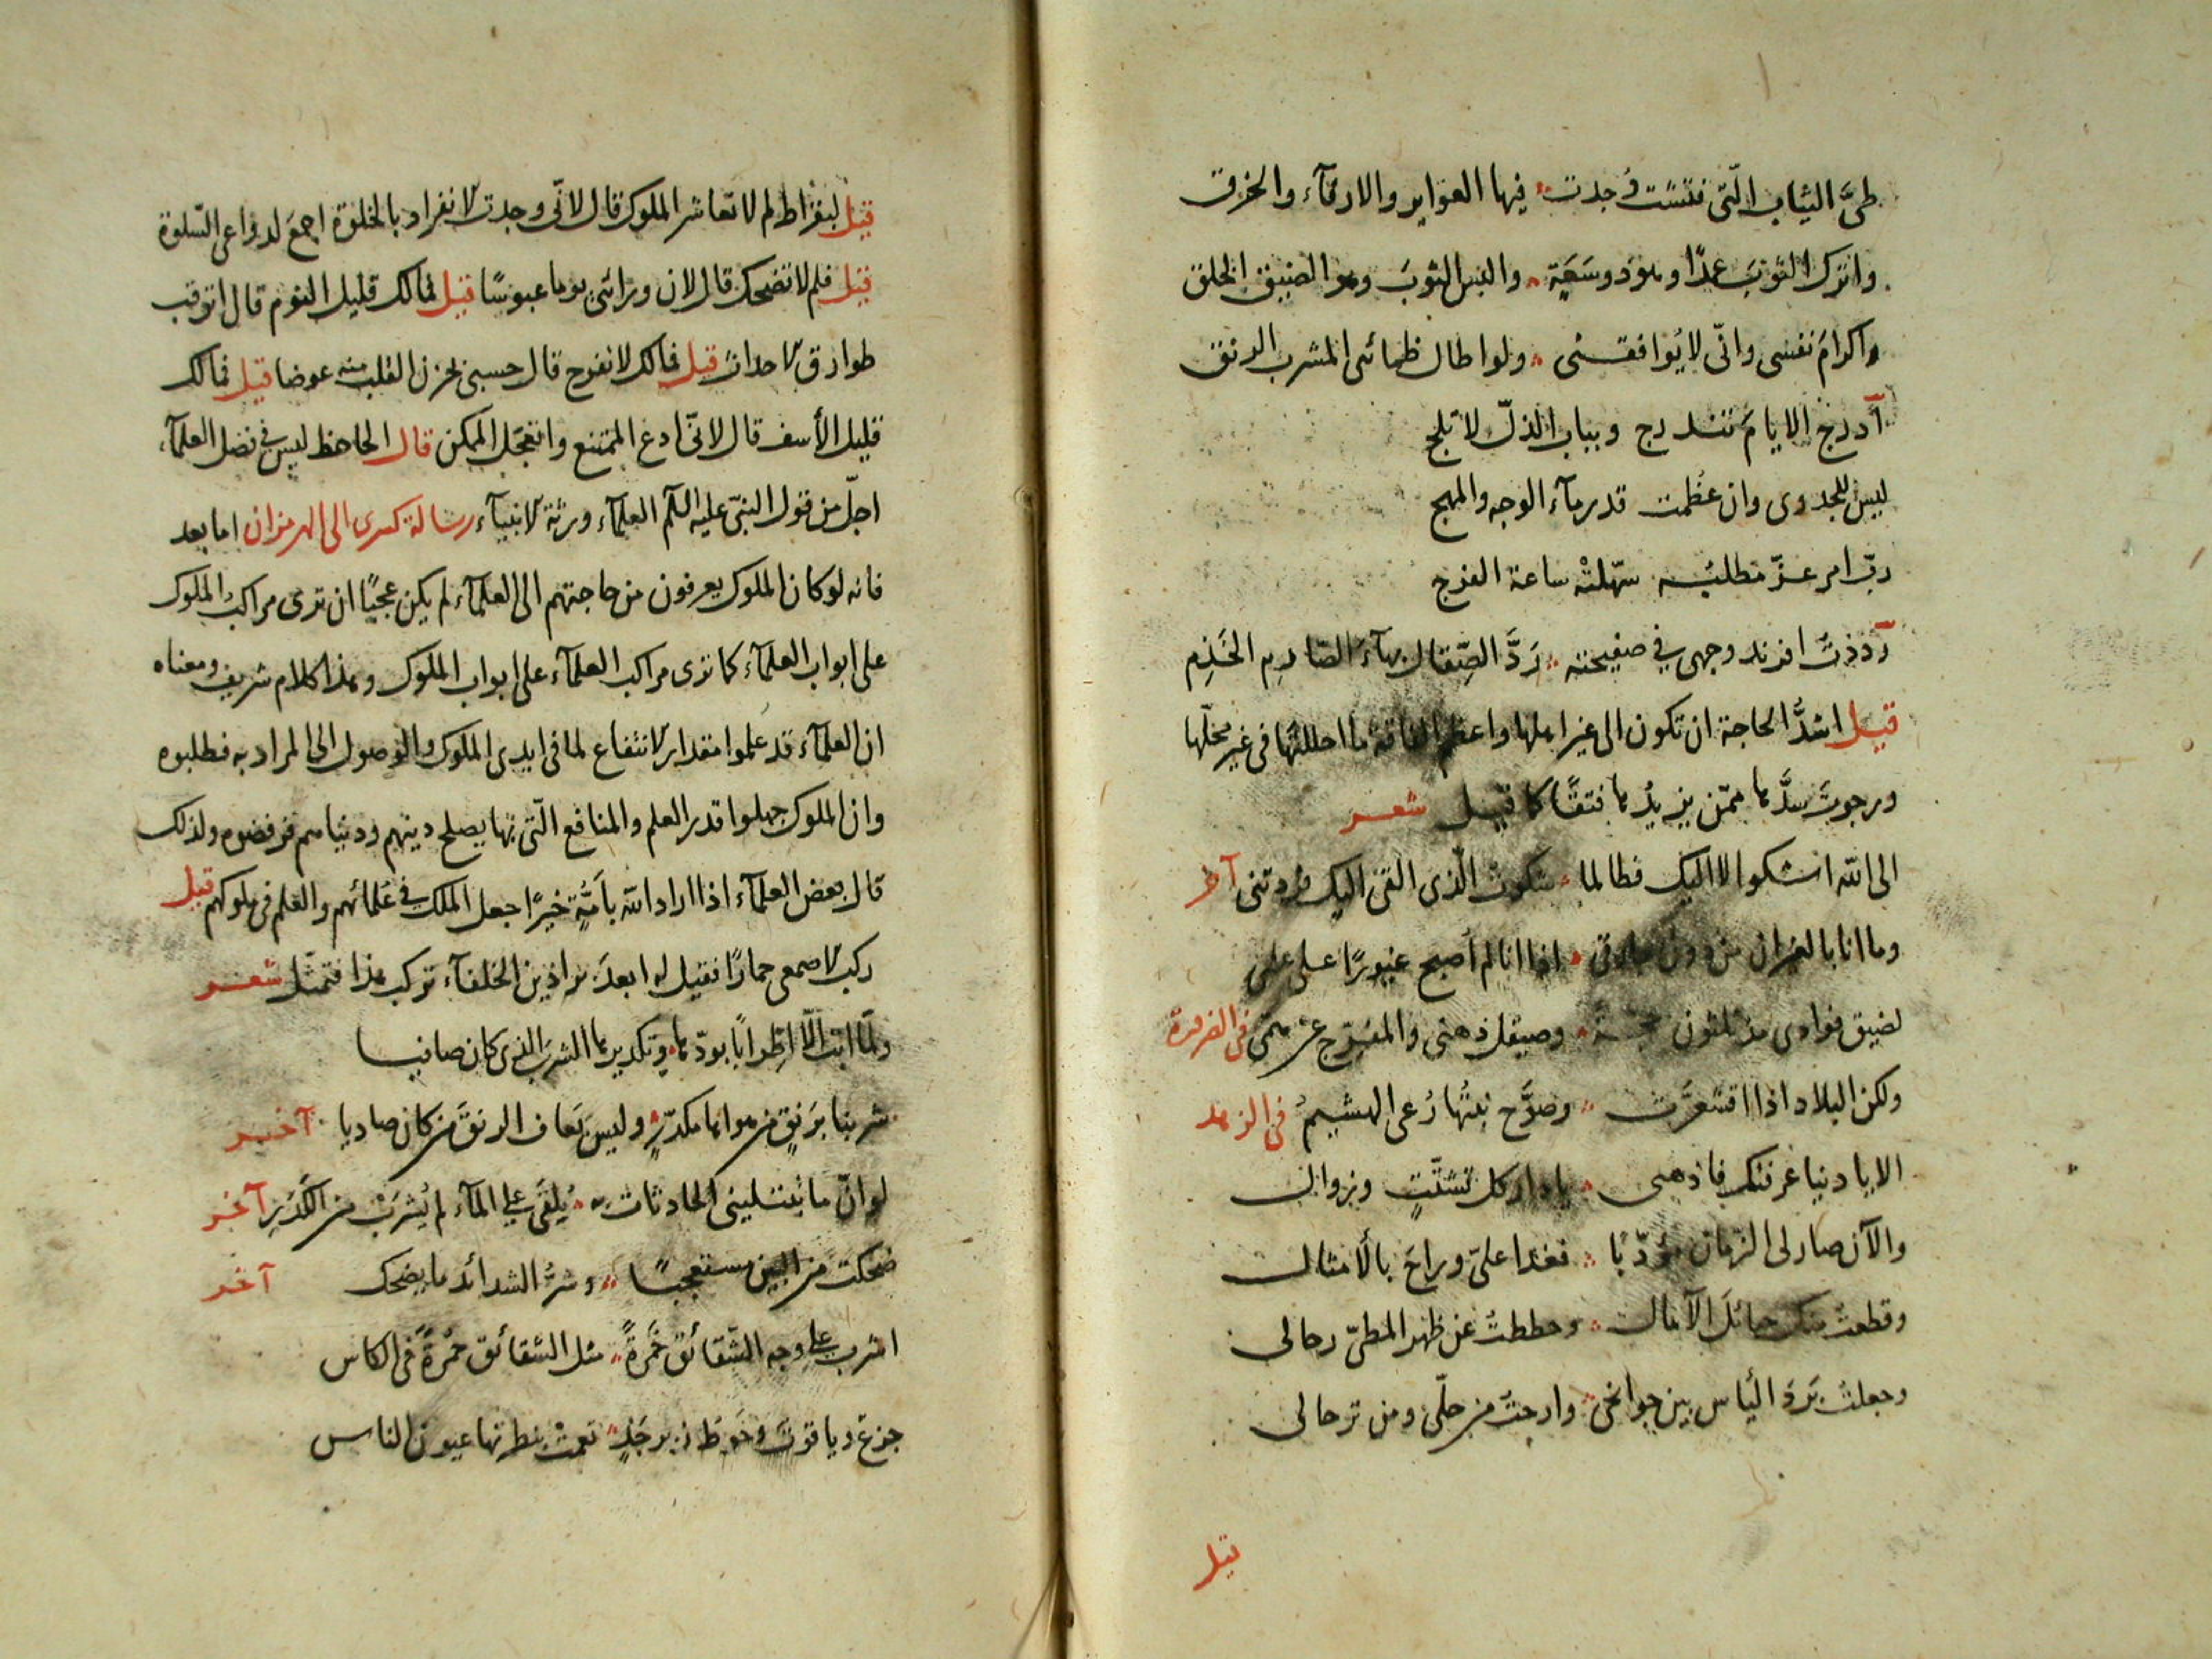 طىّ الثياب الّتى فتشت وُجدت فيها العوابر والارفآء والخرق
واترك الثوبَ عمدًا وهو دو سَعَةٍ والبس الثوبَ وهو الضيق الخلق
واكرام نفسى وانّى لا يُوافقنى ولو اطال ظمائى المشرب الرنق
آ درج الايامَ تندرج وبباب الذلّ لا تلج
ليس للجدوى وان عظمت قدر مآء الوجه والمهج
ربّ امر عزّ مطلبُه سهّلتْه ساعة الفرج
رددتُ افرند وجهى في صفيحته ردَّ الصِّقال بهآءَ الصّارمِ الخَذِم
قيل اشدُّ الحاجة ان تكون الى غير اهلها واعظم الفاقة ما احللتَها فى غير محلّها
ورجوتَ سدَّها ممّن يزيدُها فتقًا كما قيل شعر
الى الله اشكو لا اليك فطالما شكوتُ الّذى القى اليك فزدتنى آخر
وما انا بالغيران من دون اذا انا لم اصبح غيورًا على على
لضيق فوادى مذ ثلثون وصيقل ذهنى والمفرّج عن همّى فى الضرورة
ولكن البلاد اذا اقشعرَّت وصوَّح نبتُها رُعى الهشيمُ فى الزهد
الا يا دنيا عرفتك فاذهبى يا دار كل تشتّتٍ وزوال
والآن صار لى الزمان مؤدّبًا فغدا علىّ وراحَ بالأمثال
وقطعتُ منك حبائل الآمال وحططتُ عن ظهر المطىّ رحالى
وجعلت بَردَ الياس بين جوانحى وارحتُ من حلّى ومن ترحالى
قيل
قيل لبقراط لم لا تعاشر الملوك قال لانّى وجدت الانفراد بالخلوة اجمعَ لدواعى السّلوة
قيل فلم لا تضحك قال لان ورائى يوما عبوسًا قيل فمالك قليل النوم قال اتوقب
طوارق الاحداث قيل فمالك لا تفرح قال حسبى بحزن القلب منه عوضا قيل فمالك
قليل الأسف قال لانّى ادع الممتنع واتعجّل الممكن قال الجاحظ ليس فى فضل العلمآء
اجلّ من قول النبىّ عليه السلم العلمآء ورثة الانبيآء رسالة كسرى الى الهرمزان اما بعد
فانه لو كان الملوك يعرفون من حاجتهم الى العلمآء لم يكن عجبًا ان ترى مراكب الملوك
على ابواب العلمآء كما ترى مراكب العلمآء على ابواب الملوك وهذا كلام شريف ومعناه
ان العلمآء قد علموا مقدار الانتفاع لما فى ايدى الملوك والوصول الى المراد به فطلبوه
وان الملوك جهلوا قدر العلم والمنافع الّتى بها يصلح دينهم ودنياهم فرفضوه ولذلك
قال بعض العلمآء اذا اراد الله بأمّةٍ خيرًا جعل الملك فى علمائهم والعلم فى ملوكهم قيل
ركب الاصمعى حمارًا فقيل له ابعدَ براذين الخلفآء تركب هذا فتمثّل شعر
ولمّا ابت الّا اطّرابًا بودّها وتكديرها الشرب الذى كان صافيا
شربنا برَنقٍ من هواها مكدّرٍ وليس يَعاف الرنقَ من كان صاديا آخر
لو انّ ما تبتلينى الحادثات به يُلقَى على المآء لم يُشرَبْ من الكَدَرِ آخر
ضحكت من البين مستعجبًا وشرُّ الشدائد ما يضحك آخر
اشرب على وجه الشّقائق خَمرةً مثل الشقائق حُمرةً فى الكاس
جزع وياقوت وخوط زبرجدٍ نعمت بنظرتها عيون الناس